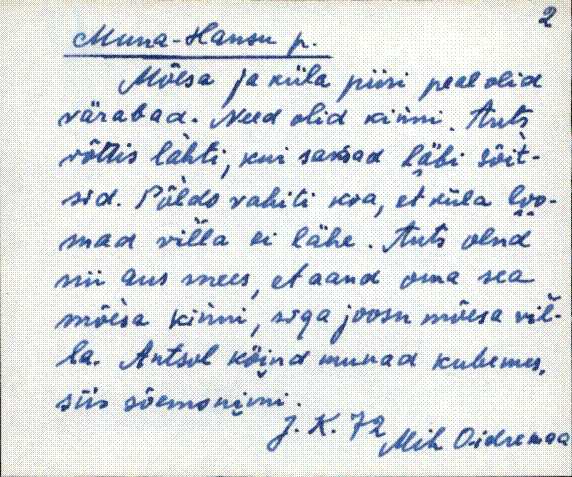 2
Muna-Hansu p.
Mõesa ja küla piiri peal olid
värabad. Need olid kinni. Ants
võttis lahti, kui saksad läbi sõit-
sid. Põldo vahiti koa, et küla loo-
mad villa ei lähe. Ants olnd
nii aus mees, et aand oma sea
mõesa kinni, siga joosn mõesa vil-
la. Antsol köind munad kubemes,
siis sõemonimi.
J. K. 72 Mih Oidremaa